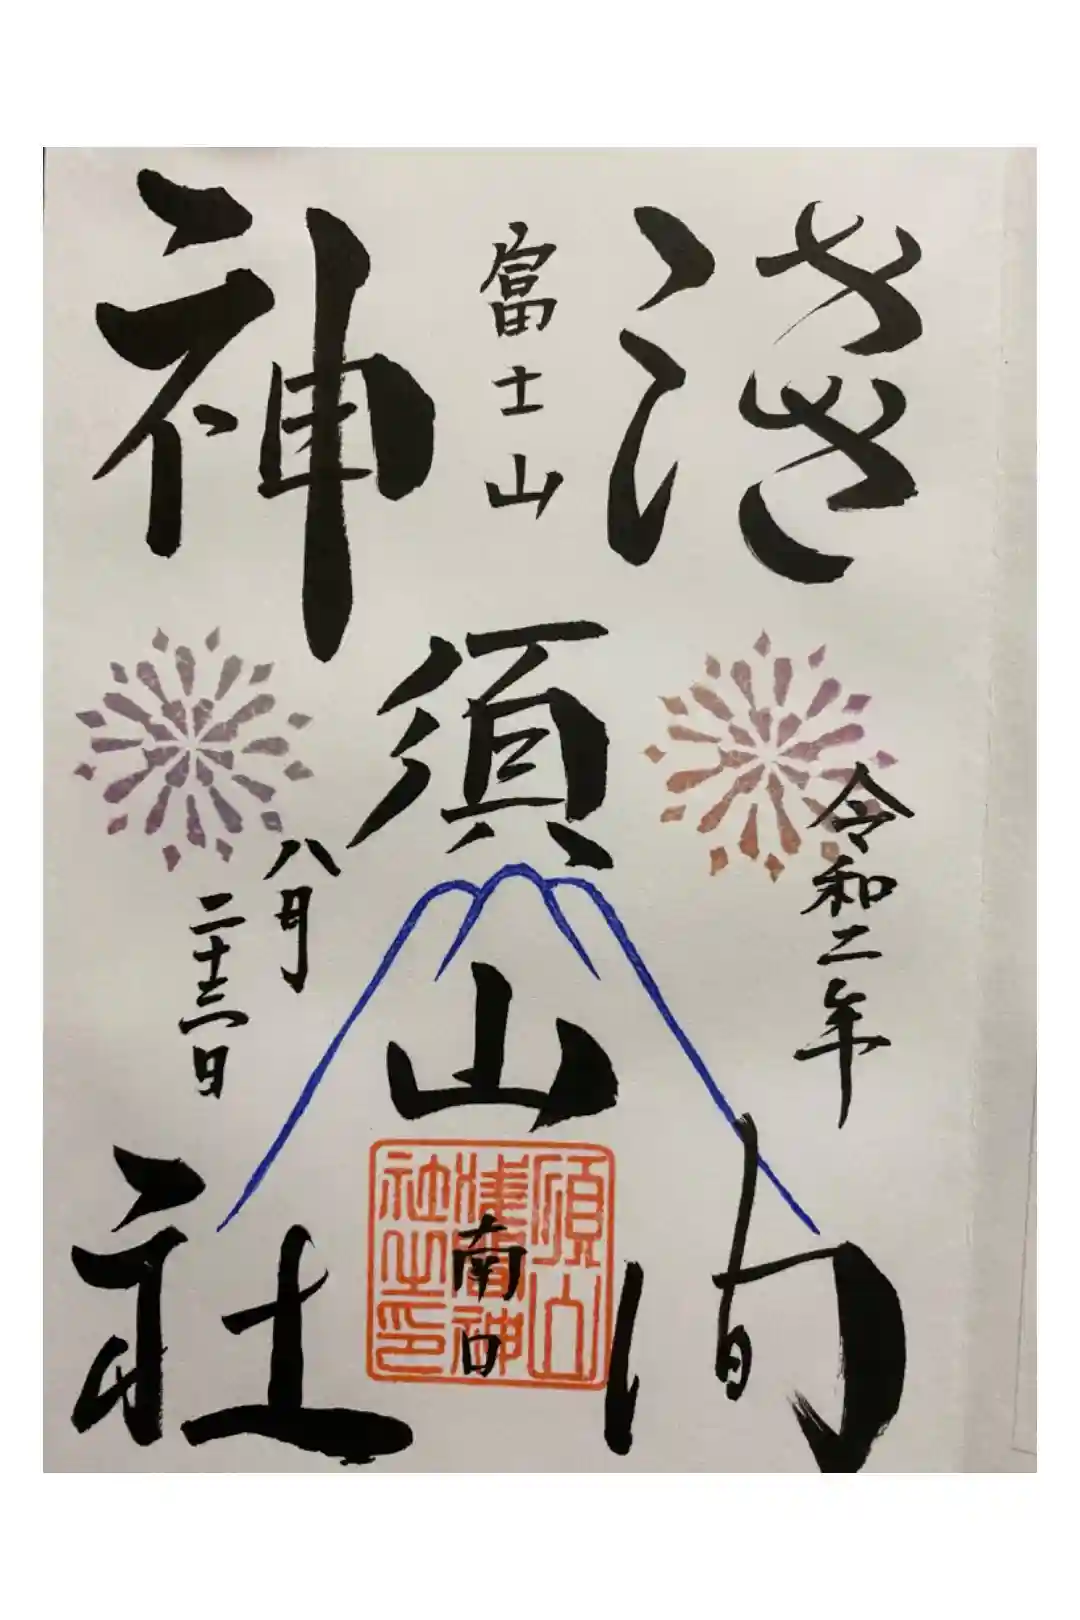 富士山
須山
浅间
神社
令和二年
八月
二十三日
南口
須山
浅間神
社之印